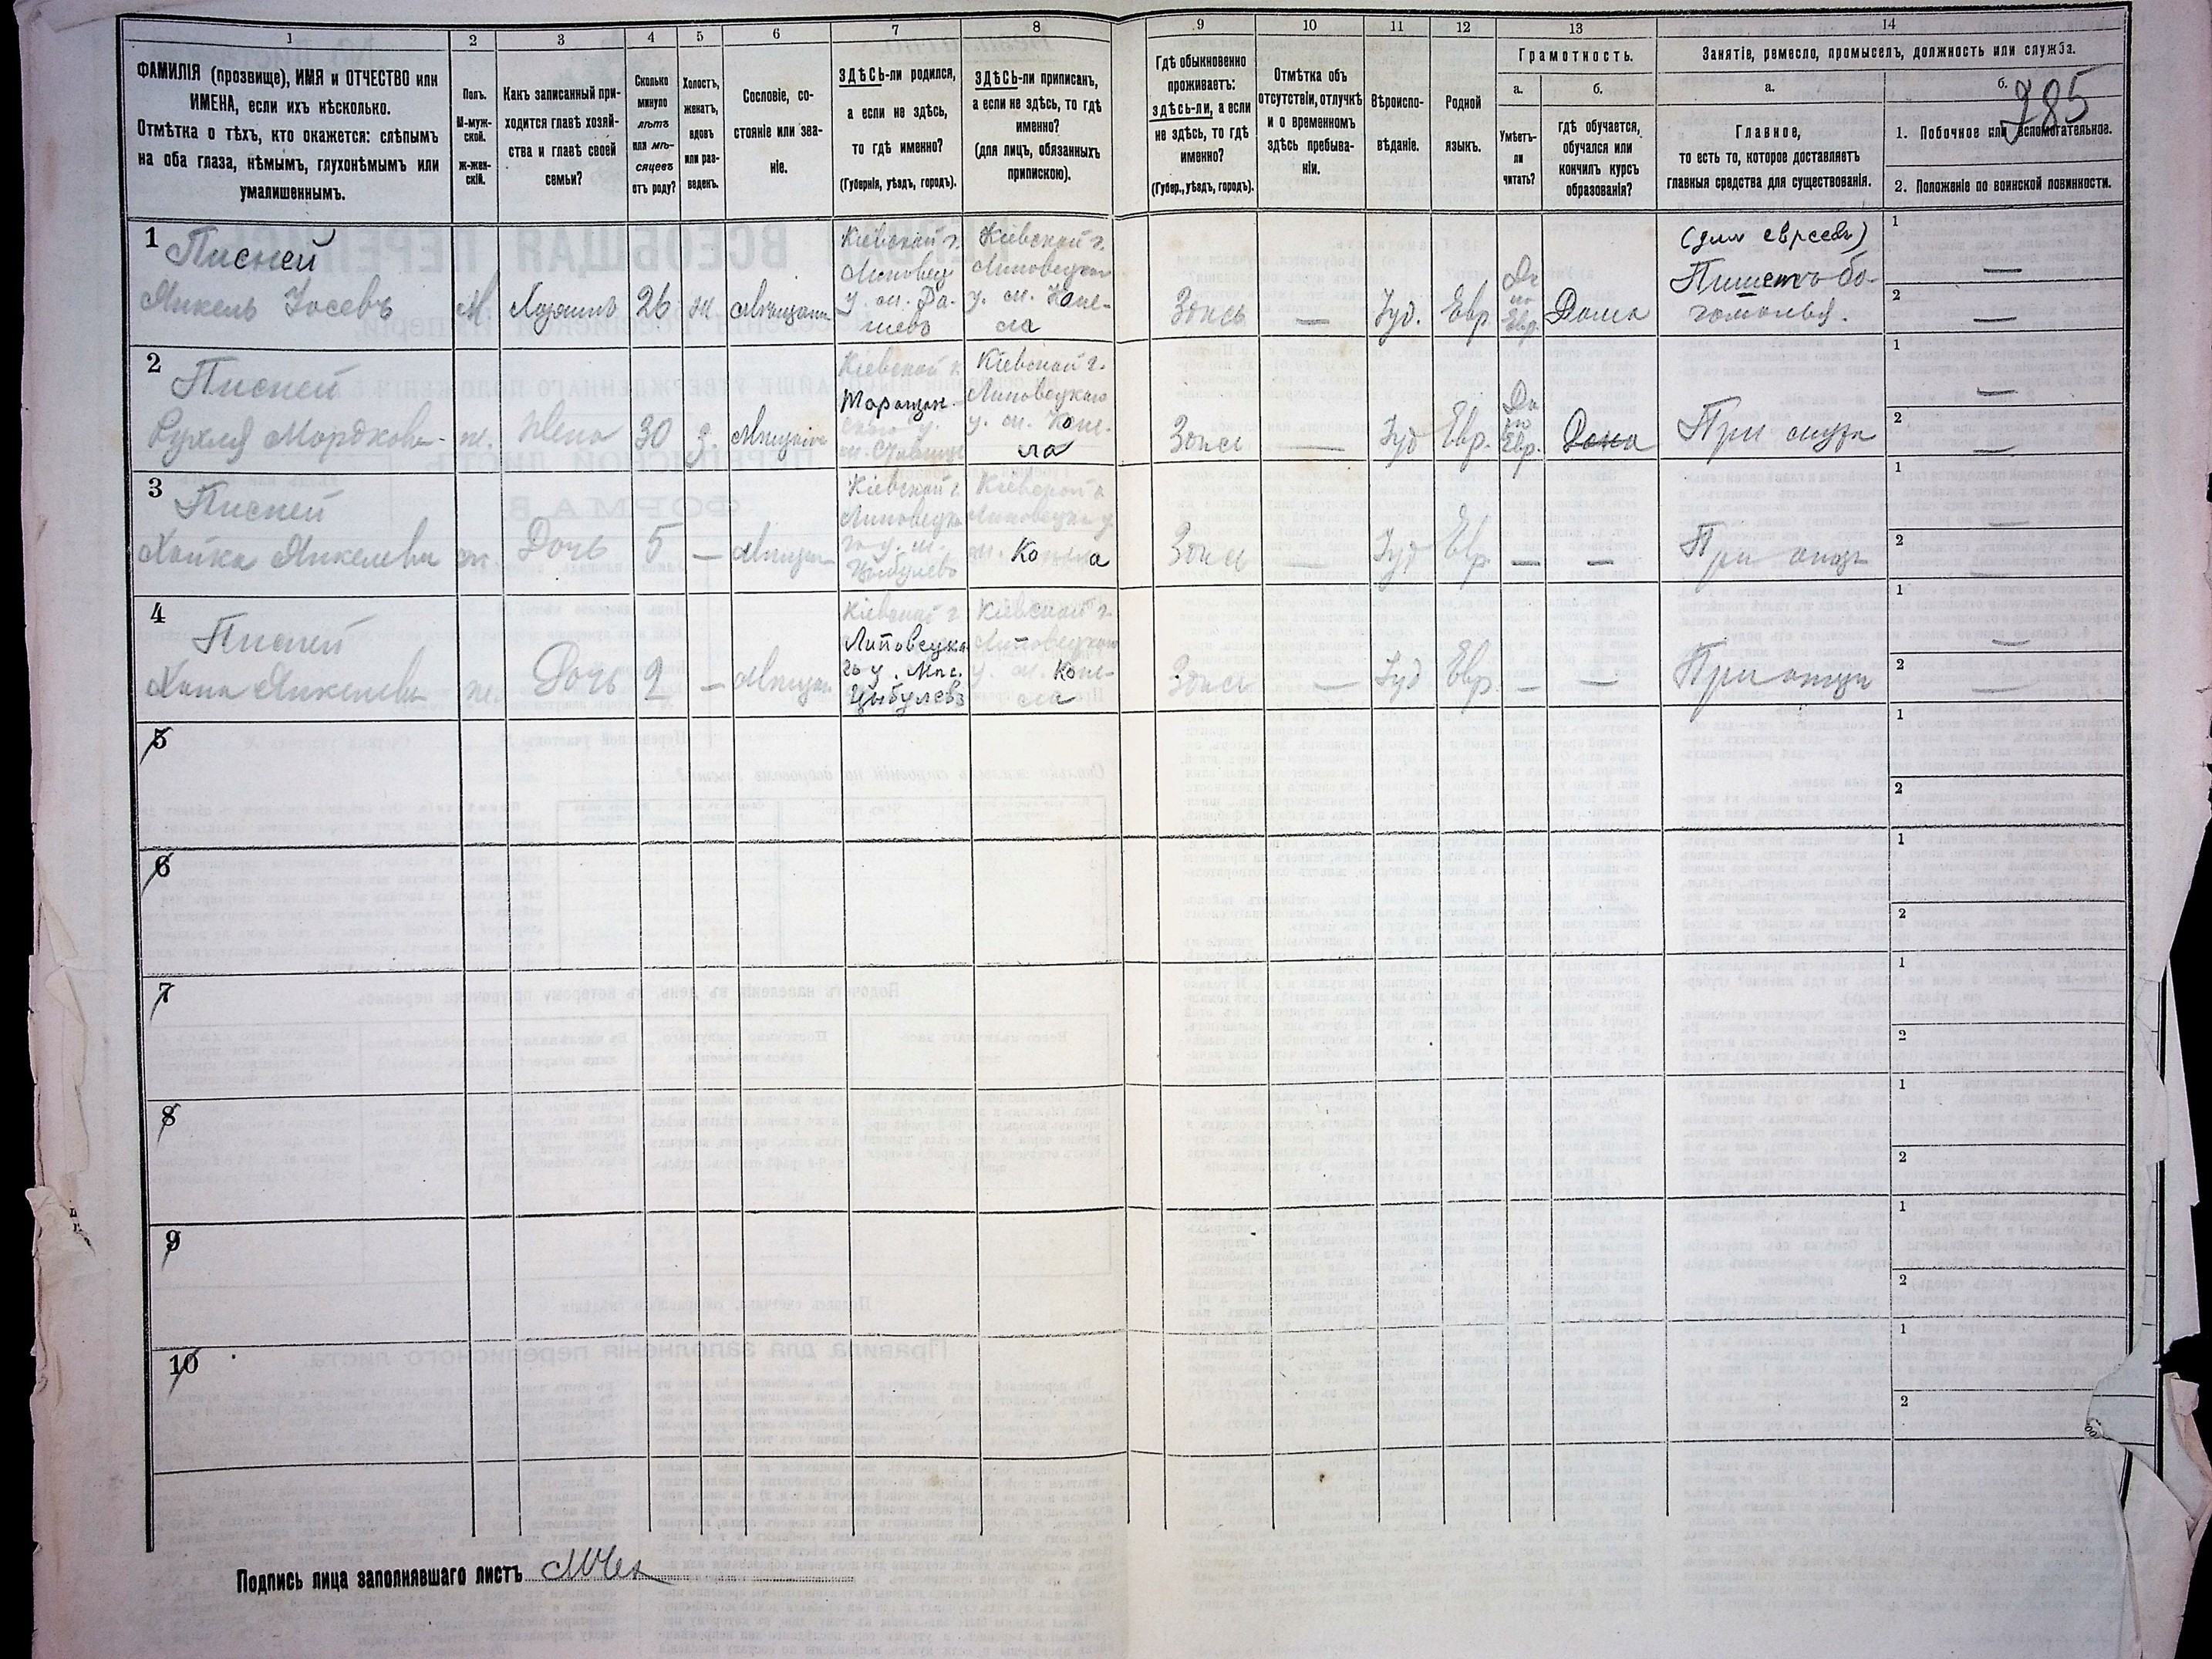 1
2
3
4
5
6
7
8
9
10
11
12
13
14
ФАМИЛІЯ (прозвище), ИМЯ и ОТЧЕСТВО или
ИМЕНА, если ихъ нѣсколько.
Отмѣтка о тѣхъ, кто окажется: слѣпымъ
на оба глаза, нѣмымъ, глухонѣмымъ или
умалишеннымъ.
Полъ.
М-муж-
ской.
ж-жен-
скій.
Какъ записанный при-
ходится главѣ хозяй-
ства и главѣ своей
семьи?
Сколько
минуло
лѣтъ
или мѣ-
сяцевъ
отъ роду?
Холостъ,
женатъ,
вдовъ
или раз-
веденъ.
Сословіе, со-
стояніе или зва-
ніе.
ЗДѢСЬ-ли родился,
а если не здѣсь,
то гдѣ именно?
(Губернія, уѣздъ, городъ).
ЗДѢСЬ-ли приписанъ,
а если не здѣсь, то гдѣ
именно?
(для лицъ, обязанныхъ
припискою).
Гдѣ обыкновенно
проживаетъ:
здѣсь-ли, а если
не здѣсь, то гдѣ
именно?
(Губер., уѣздъ, городъ).
Отмѣтка объ
отсутствіи, отлучкѣ
и о временномъ
здѣсь пребыва-
ніи.
Вѣроиспо-
вѣданіе.
Родной
языкъ.
Грамотность.
а.
Умѣетъ-
ли
читать?
б.
гдѣ обучается,
обучался или
кончилъ курсъ
образованія?
Занятіе, ремесло, промыселъ, должность или служба.
а.
Главное,
то есть то, которое доставляетъ
главныя средства для существованія.
б.
785
1. Побочное или вспомогательное.
2. Положеніе по воинской повинности.
1
Писней
Янкель Іосевъ
М.
26
Кіевской г.
Кіевской г.
у. м. Копе-
ла
Здѣсь
—
Іуд.
Евр.
Да
по
Евр.
Дома
1 —
2 —
2
Писней
Рухля Мордкова
ж.
Жена
30
Кіевской г.
Таращан-
скаго у.
Кіевской г.
Липовецкаго
у. м. Копе-
ла
Здѣсь
—
Іуд
Евр.
Да
по
Евр.
Дома
При мужѣ
1 —
2 —
3
Писней
Хайка Янкелева
ж
Дочь
5
—
Кіевской г.
Липовецка
го у. м.
Цыбулево
Кіевской г.
Липовецка у.
м. Копела
Здѣсь
—
Іуд
Евр.
—
—
При отцѣ
1 —
2 —
4
Писней
Хана Янкелева
ж.
Дочь
2
—
Кіевской г
Липовецка
го у. Мѣс.
Цыбулевъ
Кіевской г.
Липовецкаго
у. м. Копе-
ла
Здѣсь
—
Іуд
Евр.
—
—
При отцѣ
1 —
2 —
5
1
2
6
1
2
7
1
2
8
1
2
9
1
2
10
1
2
Подпись лица заполнявшаго листъ